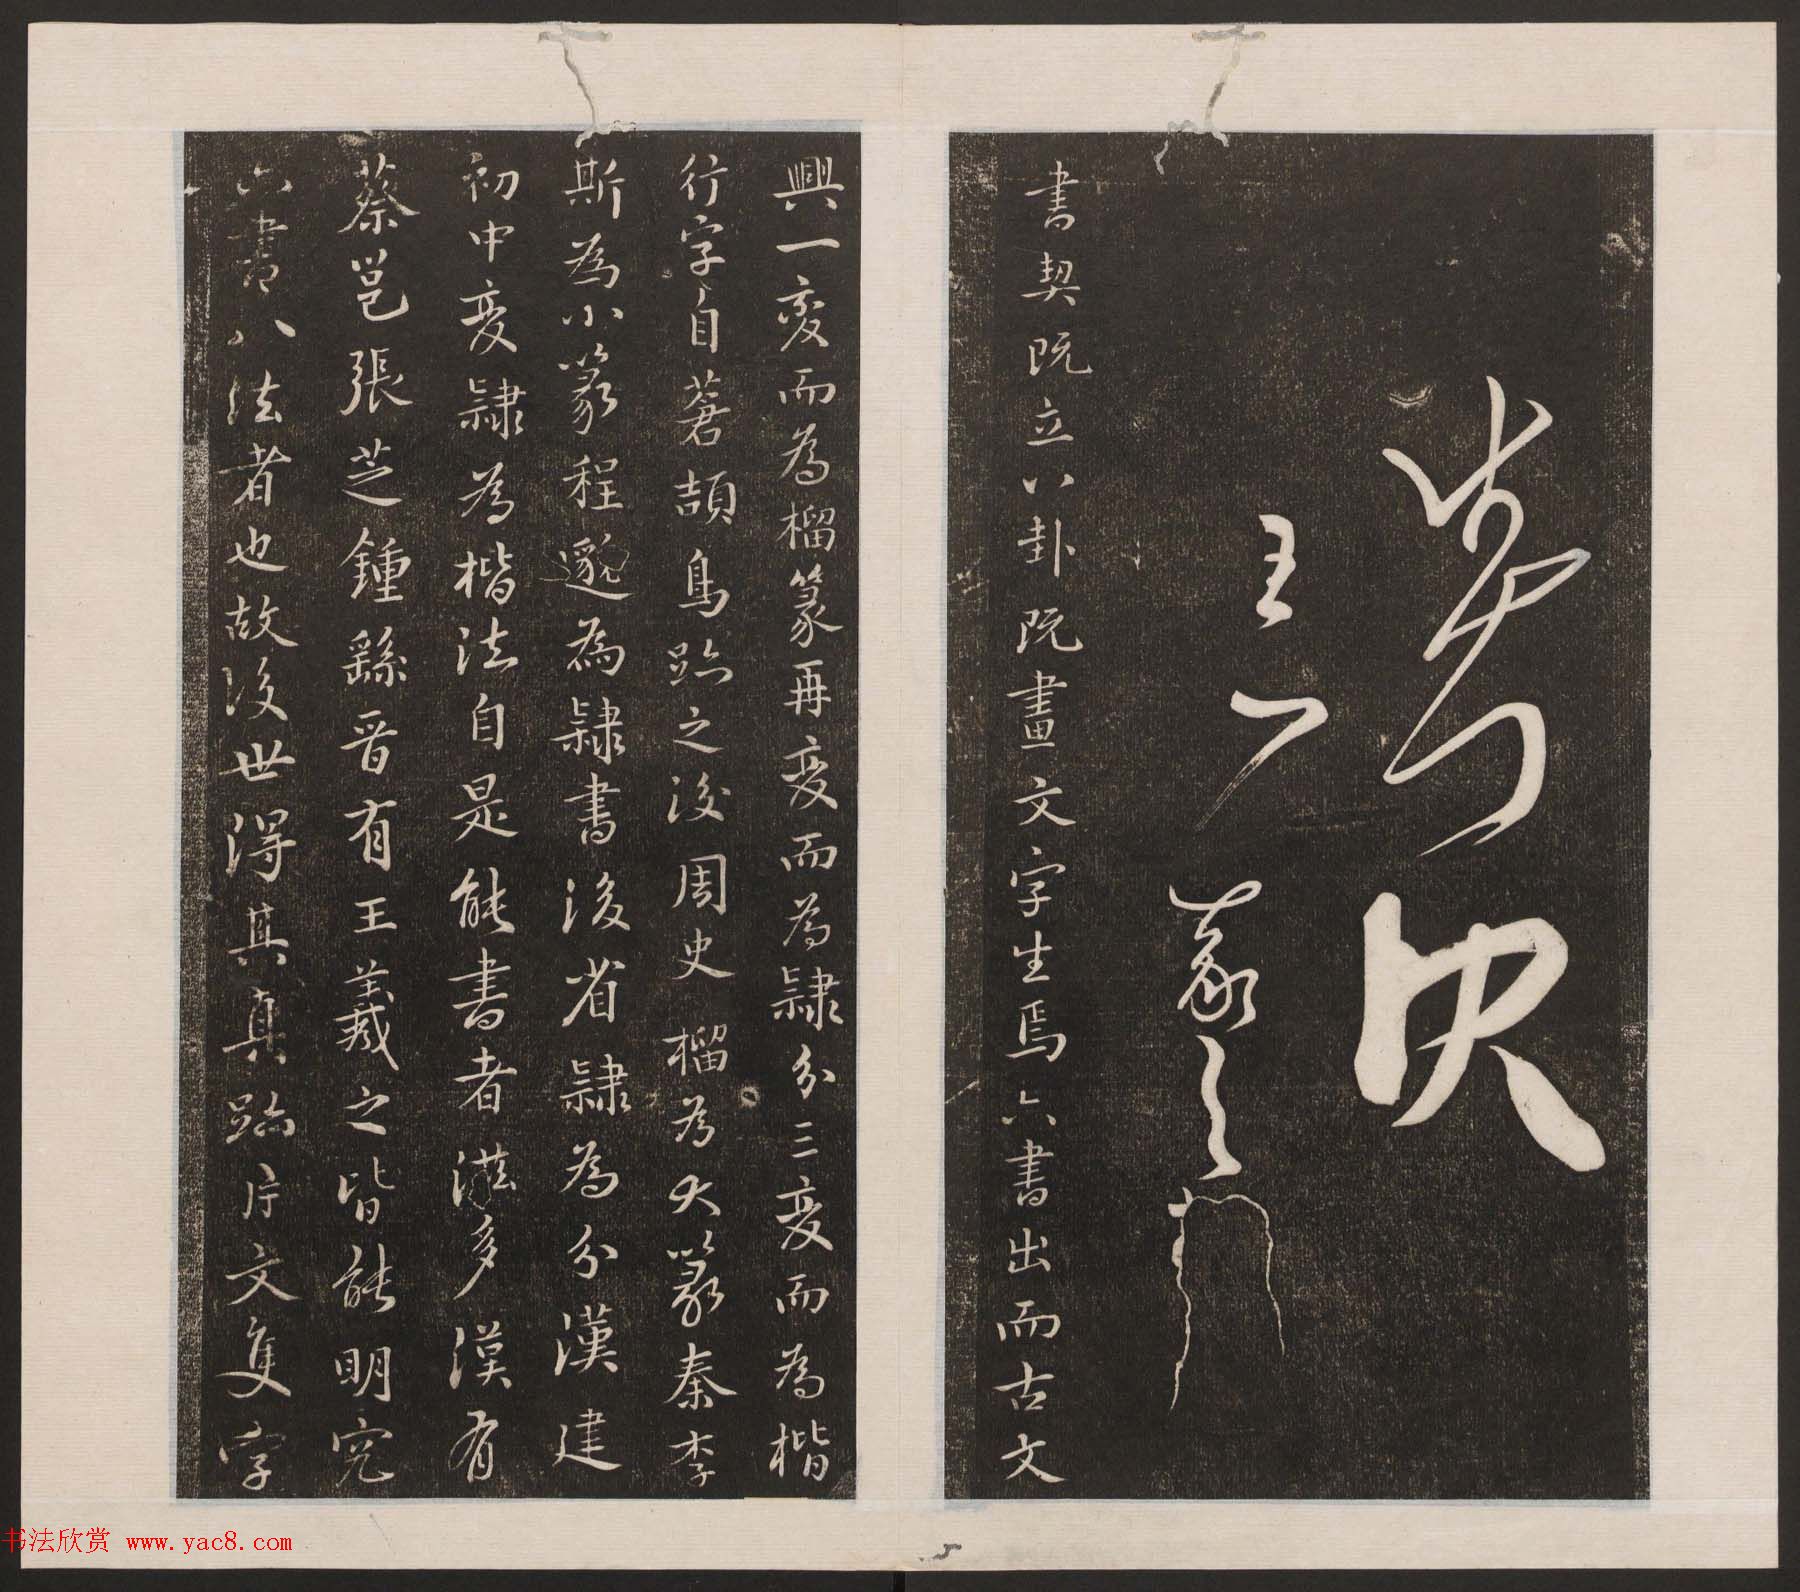 決
王 羲之
書契既立八卦既畫文字生焉六書出而古文
興一变而為榴篆再变而為隷分三变而為楷
行字自蒼頡鳥跡之後周史榴為大篆秦李
斯為小篆程邈為隷書後省隷為分漢建
初中变隷為楷法自是能書者滋多漢有
蔡邕張芝鍾繇晉有王羲之皆能明究
六書八法者也故後世得其真跡片文隻字
书法欣赏 www.yac8.com